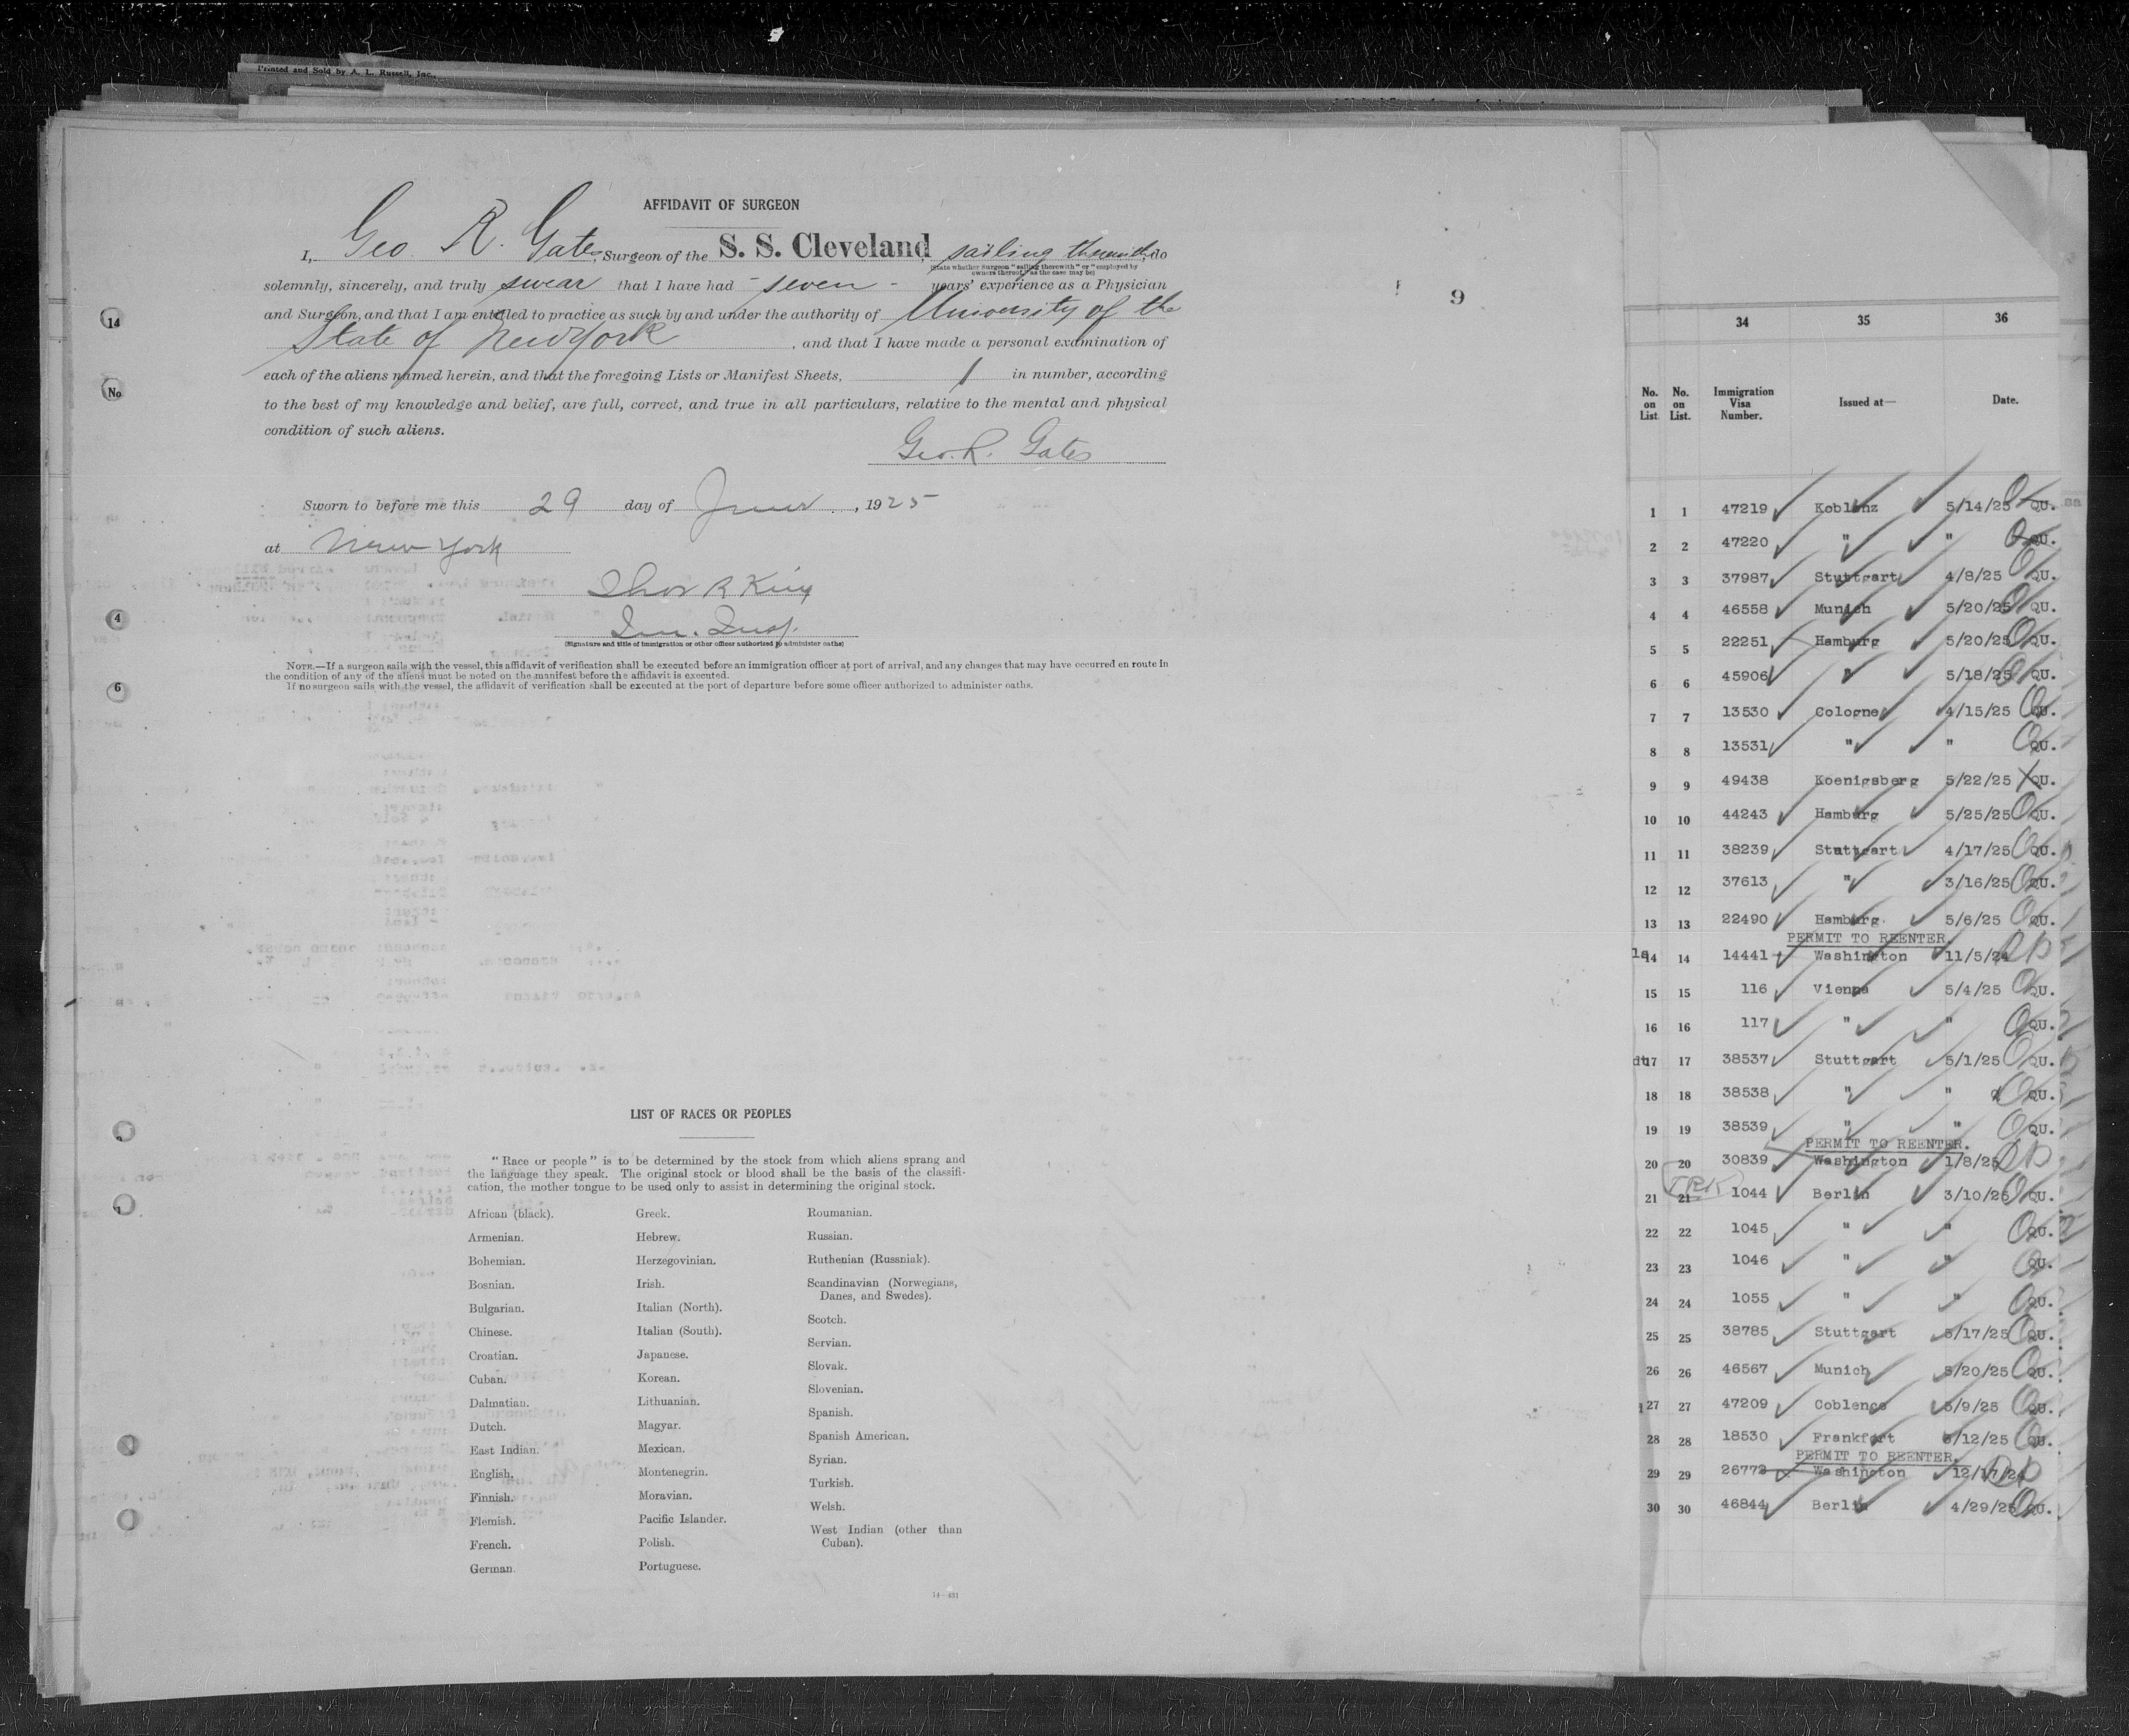 Printed and Sold by A. L. Russell, Inc.,
AFFIDAVIT OF SURGEON
I, Geo. R. Gates, Surgeon of the S. S. Cleveland, sailing therewith, do
(State whether Surgeon "sailing therewith" or "employed by
owners thereof," as the case may be)
solemnly, sincerely, and truly swear that I have had - seven - years' experience as a Physician
and Surgeon, and that I am entitled to practice as such by and under the authority of University of the
State of New York, and that I have made a personal examination of
each of the aliens named herein, and that the foregoing Lists or Manifest Sheets, 1 in number, according
to the best of my knowledge and belief, are full, correct, and true in all particulars, relative to the mental and physical
condition of such aliens.
Geo. R. Gates
Sworn to before me this 29 day of June, 1925
at New York
Thos R King
Im. Insp.
(Signature and title of immigration or other officer authorized to administer oaths)
NOTE.—If a surgeon sails with the vessel, this affidavit of verification shall be executed before an immigration officer at port of arrival, and any changes that may have occurred en route in
the condition of any of the aliens must be noted on the manifest before the affidavit is executed.
If no surgeon sails with the vessel, the affidavit of verification shall be executed at the port of departure before some officer authorized to administer oaths.
14
No
4
6
9
LIST OF RACES OR PEOPLES
"Race or people" is to be determined by the stock from which aliens sprang and
the language they speak. The original stock or blood shall be the basis of the classifi-
cation, the mother tongue to be used only to assist in determining the original stock.
African (black).
Armenian.
Bohemian.
Bosnian.
Bulgarian.
Chinese.
Croatian.
Cuban.
Dalmatian.
Dutch.
East Indian.
English.
Finnish.
Flemish.
French.
German.
Greek.
Hebrew.
Herzegovinian.
Irish.
Italian (North).
Italian (South).
Japanese.
Korean.
Lithuanian.
Magyar.
Mexican.
Montenegrin.
Moravian.
Pacific Islander.
Polish.
Portuguese.
Roumanian.
Russian.
Ruthenian (Russniak).
Scandinavian (Norwegians,
Danes, and Swedes).
Scotch.
Servian.
Slovak.
Slovenian.
Spanish.
Spanish American.
Syrian.
Turkish.
Welsh.
West Indian (other than
Cuban).
14—431
34 35 36
No. on List. No. on List. Immigration Visa Number. Issued at— Date.
1 1 47219 Koblenz 5/14/25 QU.
2 2 47220 " " QU.
3 3 37987 Stuttgart 4/8/25 QU.
4 4 46558 Munich 5/20/25 QU.
5 5 22251 Hamburg 5/20/25 QU.
6 6 45906 " 5/18/25 QU.
7 7 13530 Cologne 4/15/25 QU.
8 8 13531 " " QU.
9 9 49438 Koenigsberg 5/22/25 QU.
10 10 44243 Hamburg 5/25/25 QU.
11 11 38239 Stuttgart 4/17/25 QU.
12 12 37613 " 3/16/25 QU.
13 13 22490 Hamburg. 5/6/25 QU.
PERMIT TO REENTER.
14 14 14441 Washington 11/5/24
15 15 116 Vienna 5/4/25 QU.
16 16 117 " " QU.
17 17 38537 Stuttgart 5/1/25 QU.
18 18 38538 " " QU.
19 19 38539 " " QU.
PERMIT TO REENTER.
20 20 30839 Washington 1/8/25
TRK
21 21 1044 Berlin 3/10/25 QU.
22 22 1045 " " QU.
23 23 1046 " " QU.
24 24 1055 " " QU.
25 25 38785 Stuttgart 5/17/25 QU.
26 26 46567 Munich 5/20/25 QU.
27 27 47209 Coblence 5/9/25 QU.
28 28 18530 Frankfort 5/12/25 QU.
PERMIT TO REENTER.
29 29 26772 Washington 12/17/24
30 30 46844 Berlin 4/29/25 QU.